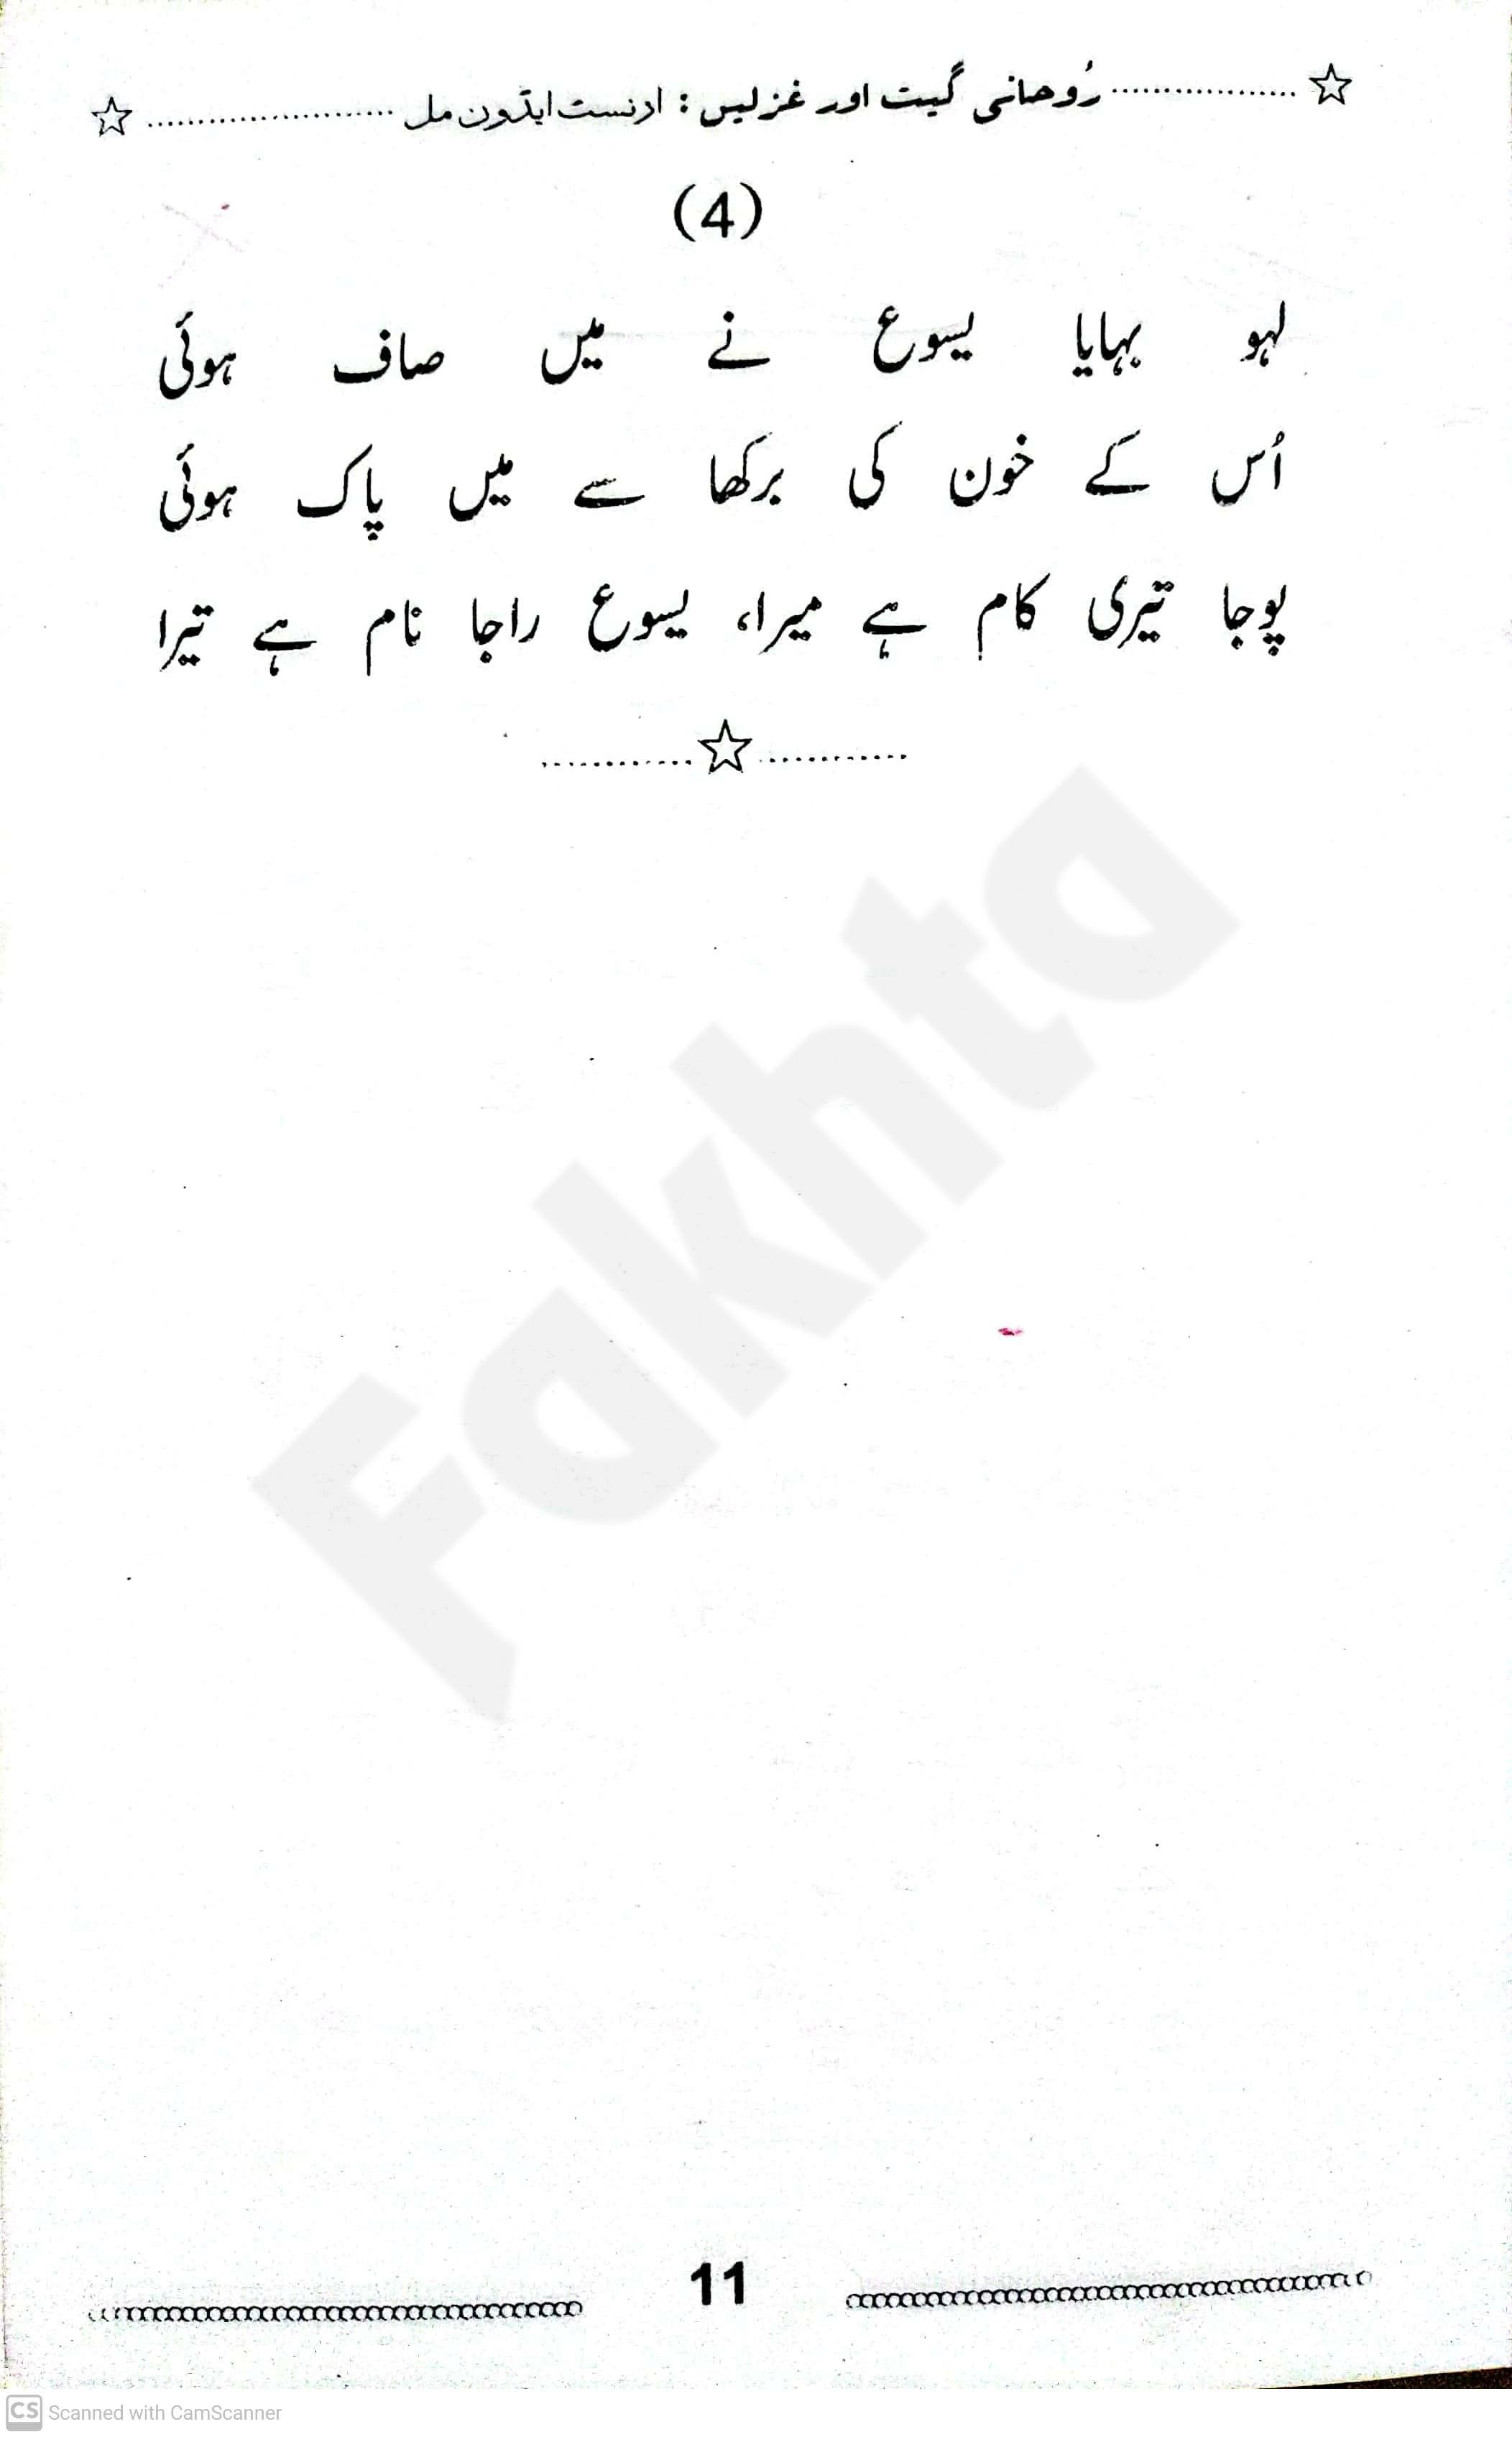 ☆ ................ رُوحانی گیت اور غزلیں : ارنسٹ ایڈون مل ........................ ☆
(4)
لہو بہایا یسوع نے میں صاف ہوئی
اُس کے خون کی برکھا سے میں پاک ہوئی
پوجا تیری کام ہے میرا، یسوع راجا نام ہے تیرا
............☆............
Fakhta
11
CS Scanned with CamScanner